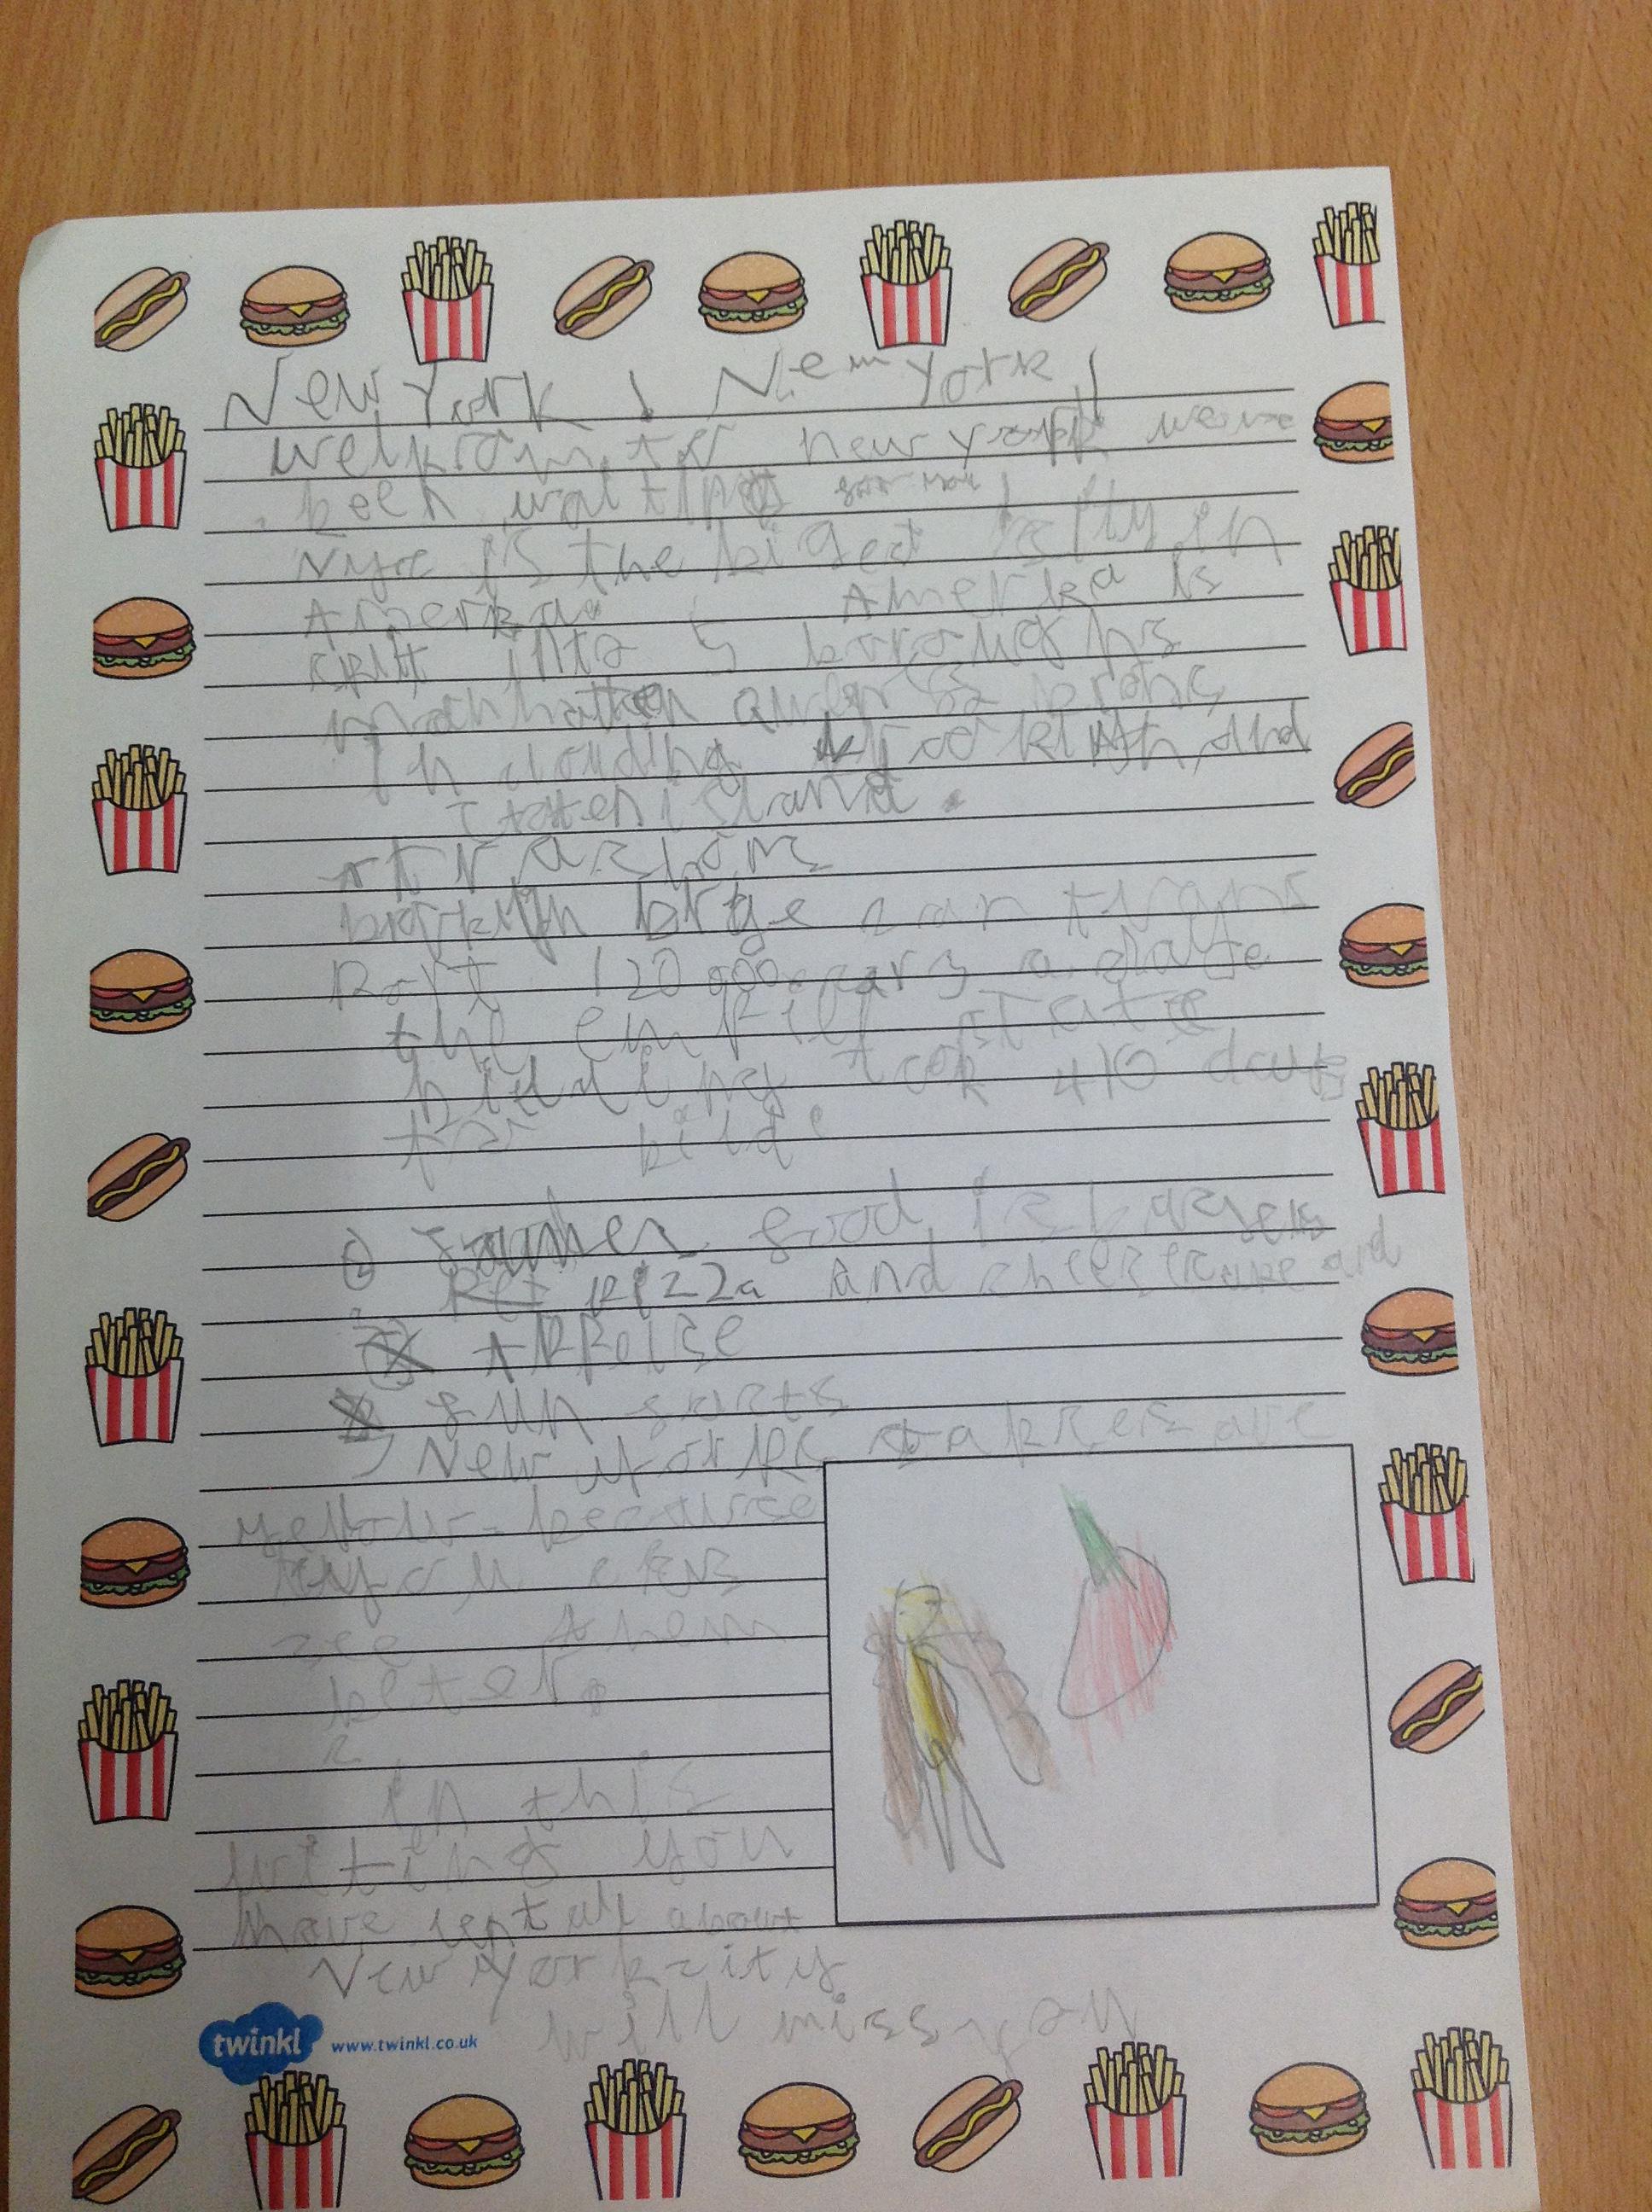 New York! New york!
welkom to new york weve
been waiting for you!
Nyc is the bigest sity in
Amerka. Amerka is
split into 5 buroughs
manhatten queens bronc
in clouding brooklyn, and
staten island.
Atracshons
brooklyn brige can trans
port 120 000 cars a
the empier state
bielding took 410 days
to bild.
food is burgers
pizza and cheescake and
Appelse
fun facts
New yorks taksees are
yellow becaurse
you
see them
beter.
in this
riting you
have lernt all about
New York city
will miss you
twinkl www.twinkl.co.uk